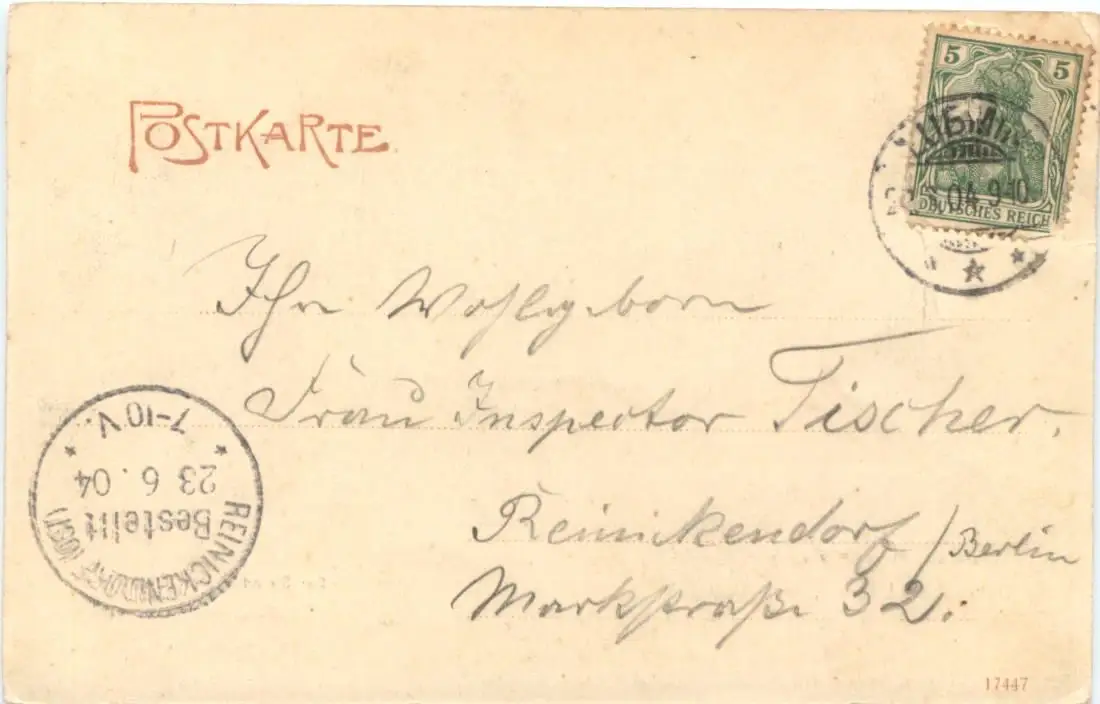 POSTKARTE
5 5
04 9-10
DEUTSCHES REICH
Ihr Wohlgeborn
Frau Inspector Tischer.
Reinikendorf / Berlin
Markstraße 32.
REINICKENDORF (OST)
Bestellt
23 6. 04
7-10 V.
17447